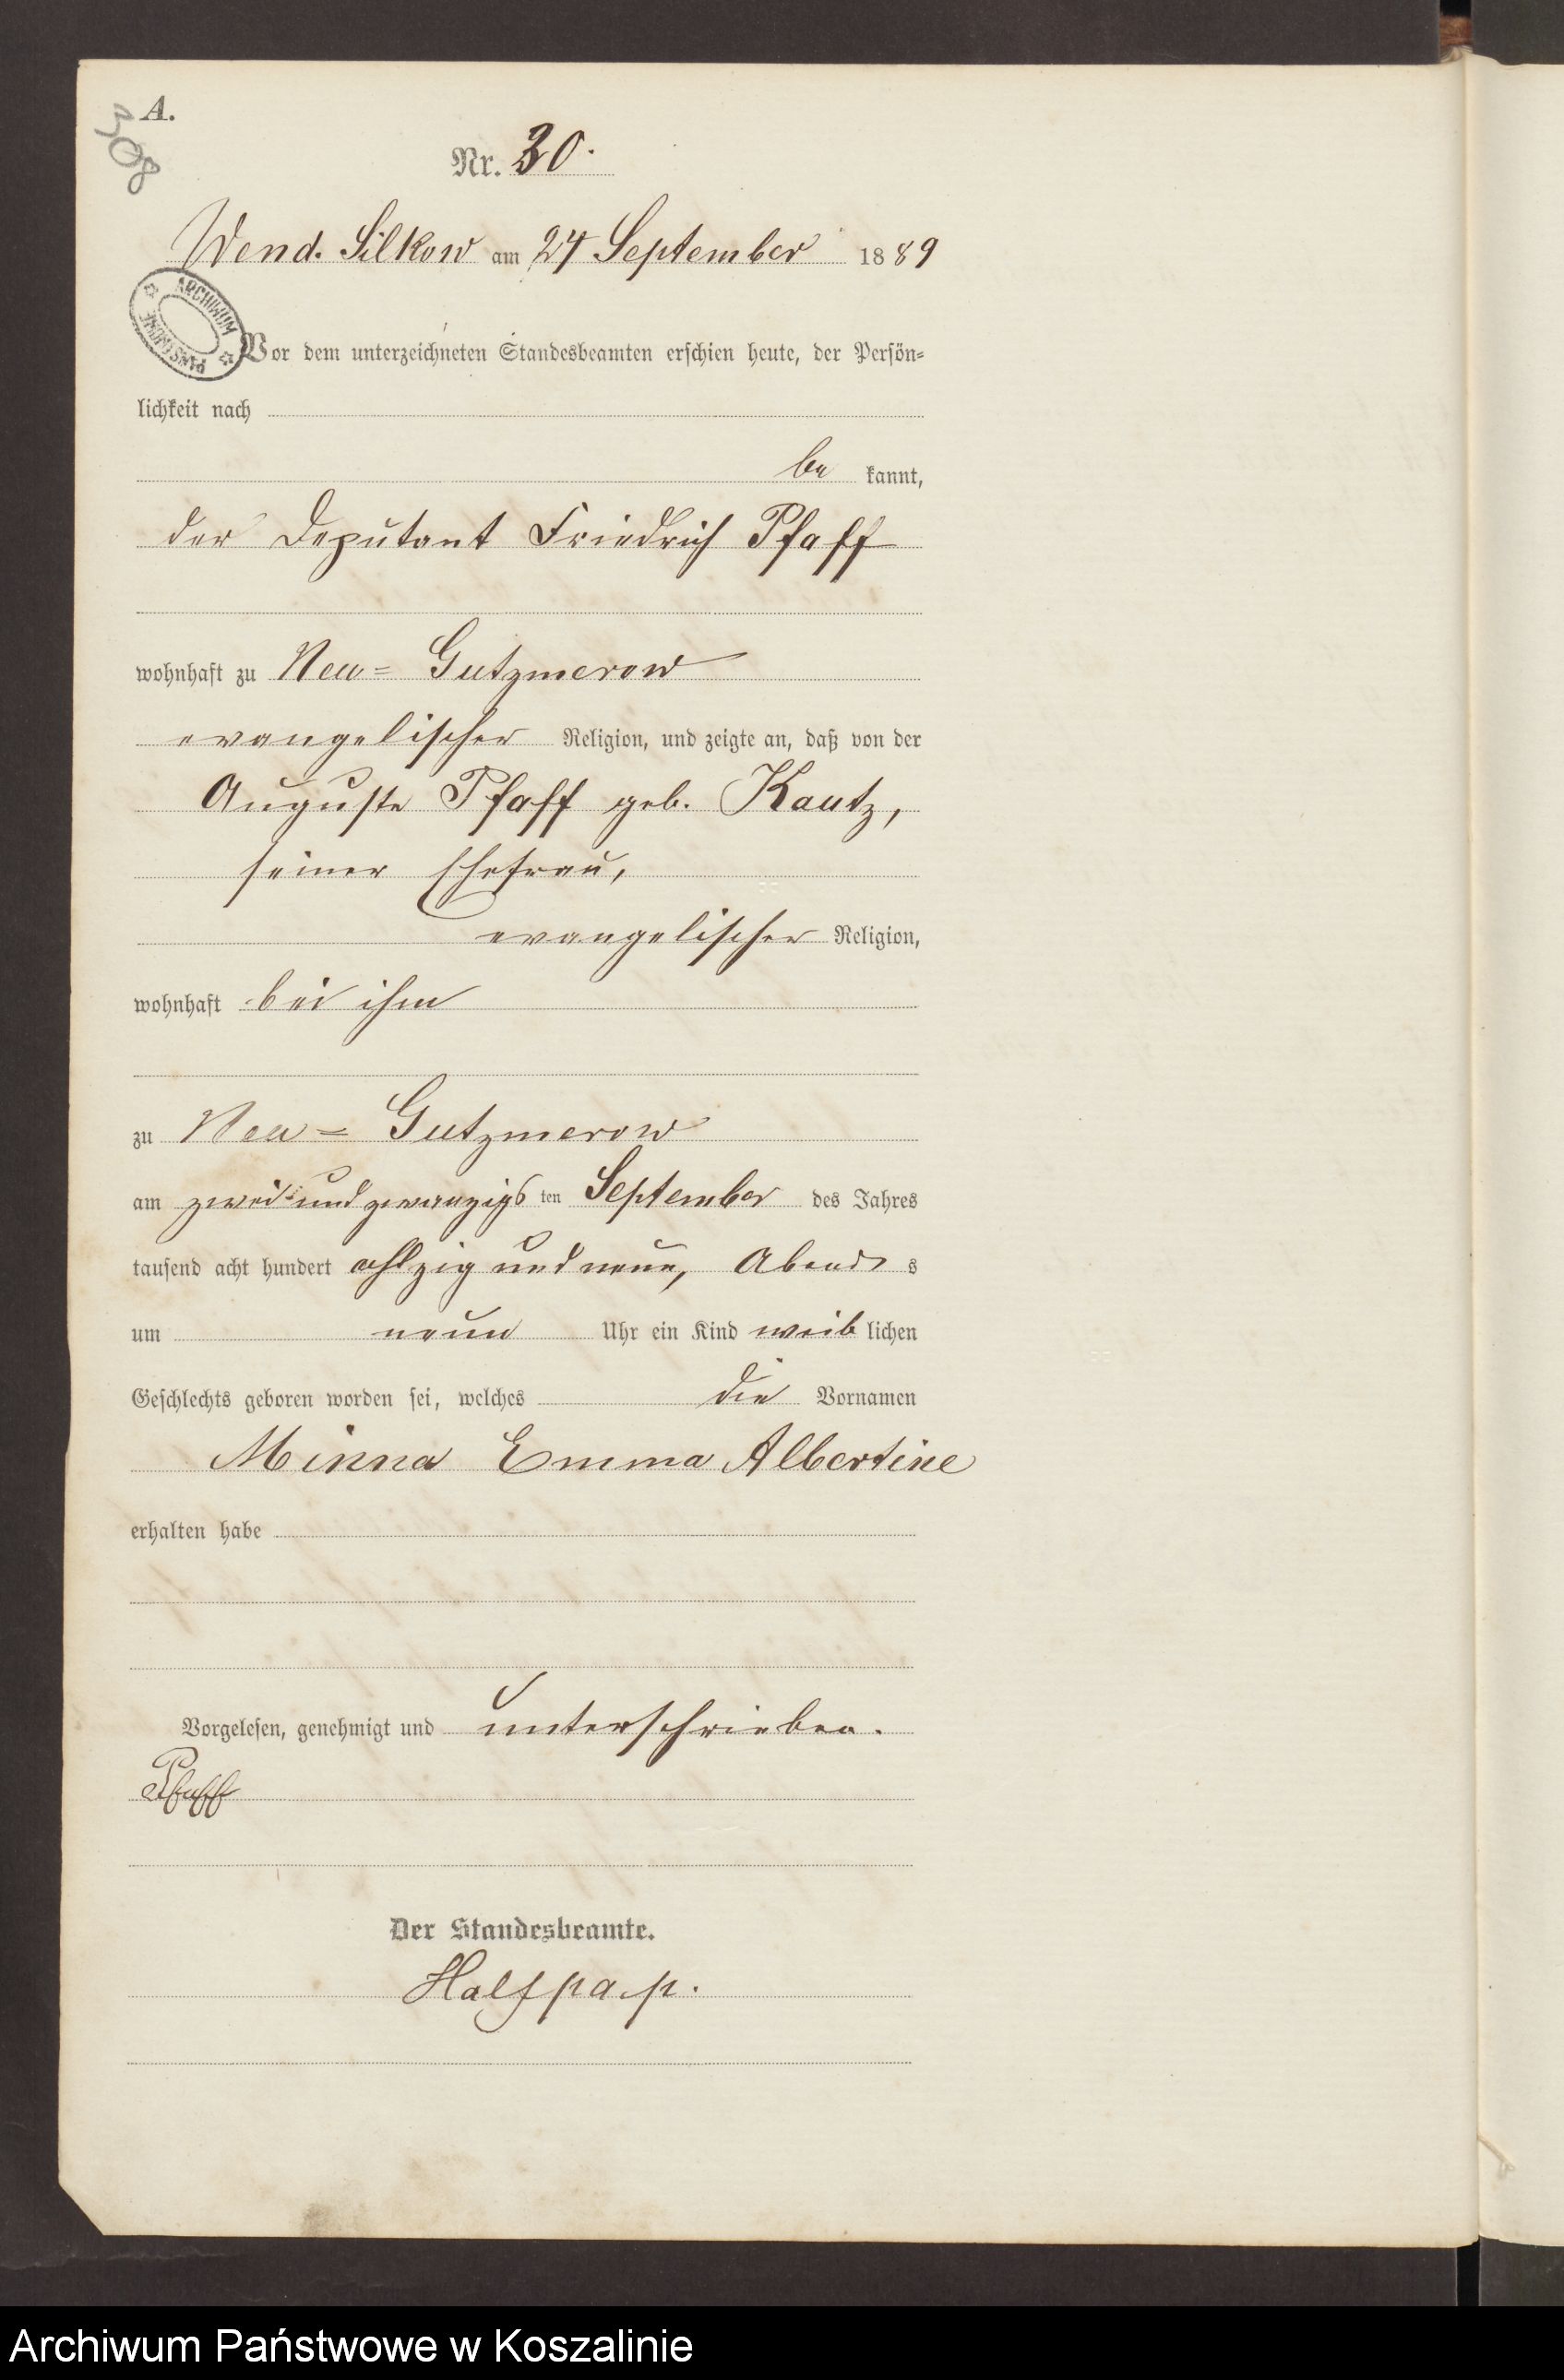 A.
308
Nr. 30.
Wend. Silkow am 24 September 1889
ARCHIWUM PAŃSTWOWE
Vor dem unterzeichneten Standesbeamten erschien heute, der Persön=
lichkeit nach
be kannt,
der Deputant Friedrich Pfaff
wohnhaft zu Neu= Gutzmerow
evangelischer Religion, und zeigte an, daß von der
Auguste Pfaff geb. Kautz,
seiner Ehefrau,
evangelischer Religion,
wohnhaft bei ihm
zu Neu= Gutzmerow
am zwei und zwanzigs ten September des Jahres
tausend acht hundert achtzig und neun, Abends s
um neun Uhr ein Kind weib lichen
Geschlechts geboren worden sei, welches die Vornamen
Minna Emma Albertine
erhalten habe
Vorgelesen, genehmigt und unterschrieben.
Pfaff
Der Standesbeamte.
Halfpap.
Archiwum Państwowe w Koszalinie